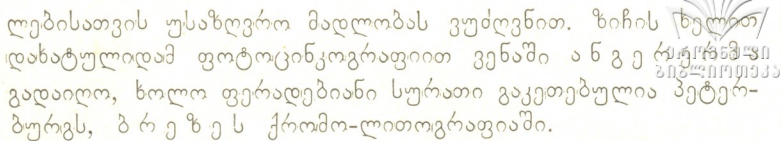 ლებისათვის უსაზღვრო მადლობას ვუძღვნით. ზიჩის ხელით
დახატულიდამ ფოტოცინკოგრაფიით ვენაში ა ნ გ ე რ ე რ მ-ა
გადაიღო, ხოლო ფერადებიანი სურათი გაკეთებულია პეტერ-
ბურგს, ბ რ ე ზ ე ს ქრომო-ლითოგრაფიაში.
ეროვნული
ბიბლიოთეკა